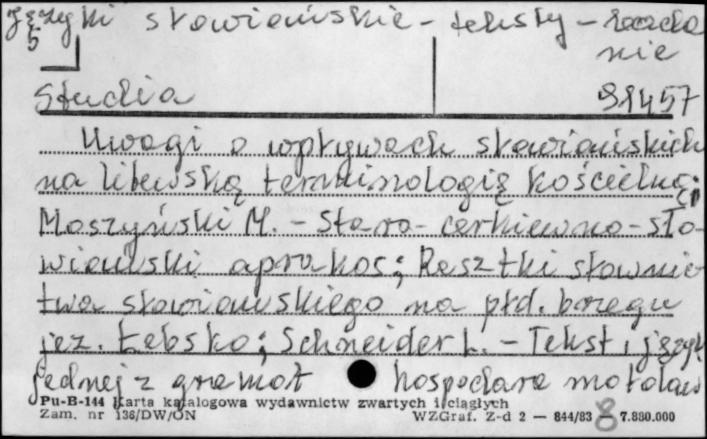 Języki słowiańskie - teksty - badania
5
Studia 91457
Uwagi o wpływach słowiańskich
na litewską terminologię kościelną;
Moszyński M. - Staro-cerkiewno-sło-
wiański aprakos; Resztki słownic-
twa słowiańskiego na płd. brzegu
jez. Łebsko; Schneider L. - Tekst i język
jednej z gramot hospodara mołdaw
Pu-B-144 Karta katalogowa wydawnictw zwartych i ciągłych
Zam. nr 136/DW/ON WZGraf. Z-d 2 — 844/83 — 7.880.000
8